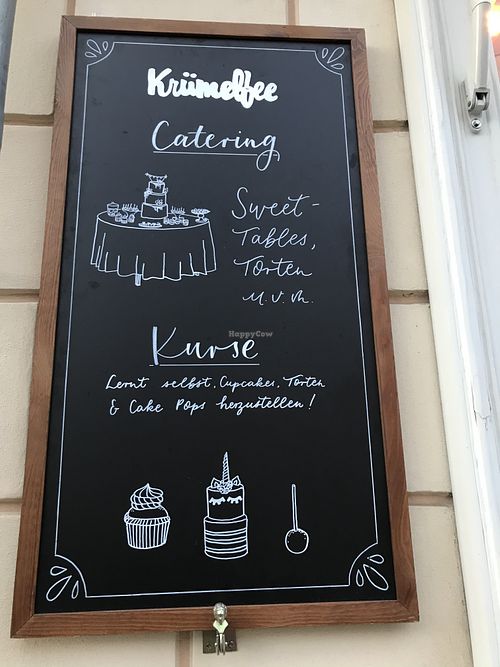 Krümelfee
Catering
Sweet-
Tables,
Torten
u.v.m.
HappyCow
Kurse
Lernt selbst, Cupcakes, Torten
& Cake Pops herzustellen!